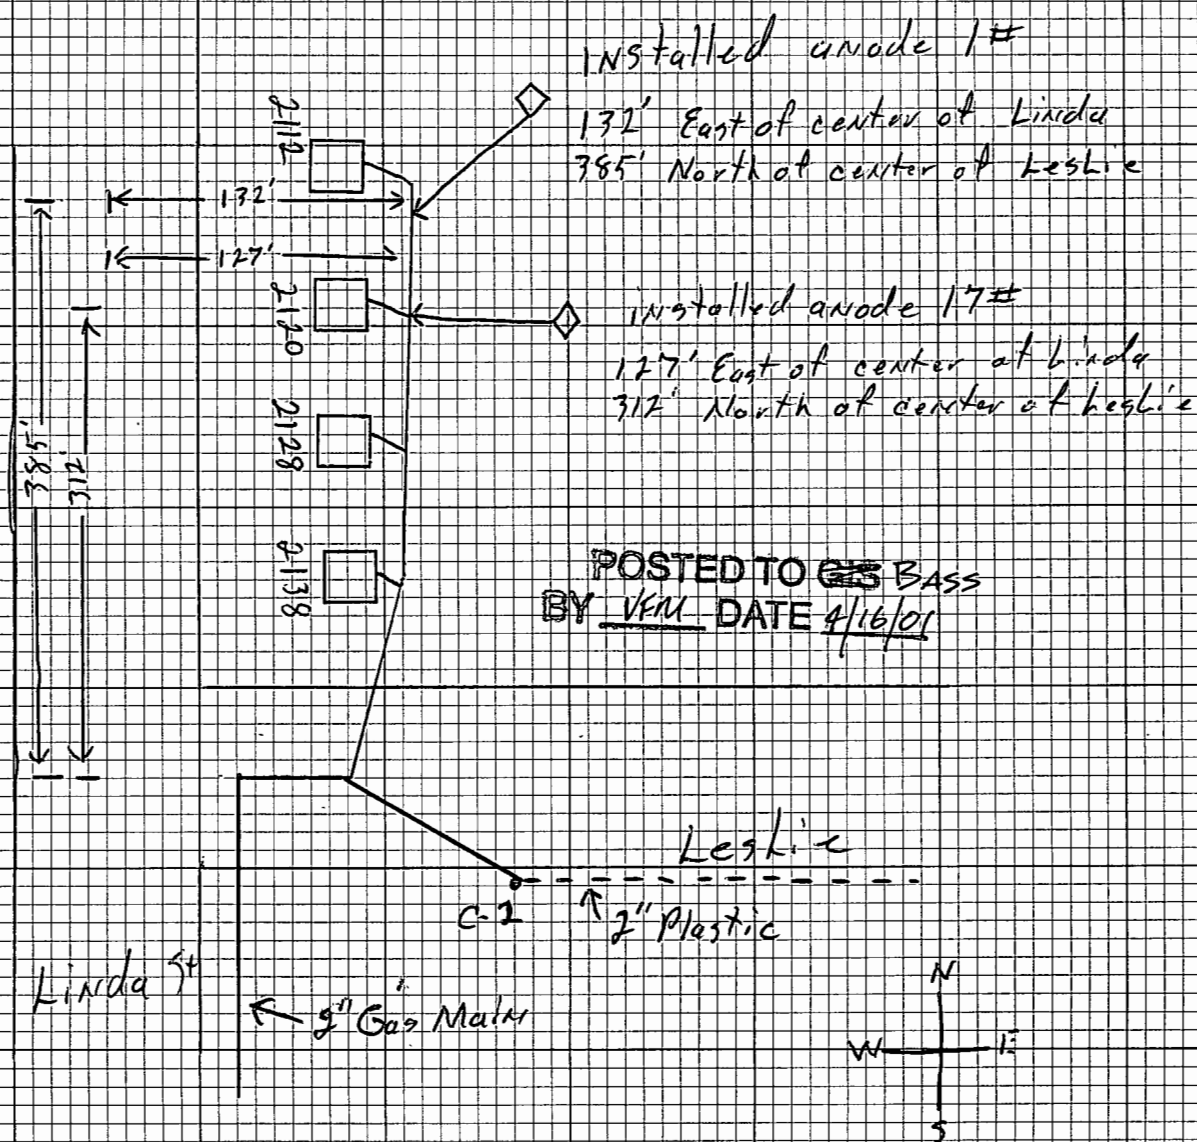 Installed anode 1#
132' East of center of Linda
385' North of center of Leslie
2112
132'
127'
2120
installed anode 17#
127' East of center of Linda
312' North of center of Leslie
2128
385'
312'
2138
POSTED TO GIS BASS
BY VFM DATE 4/16/01
Leslie
C-1
2" Plastic
Linda St
2" Gas Main
N
W E
S